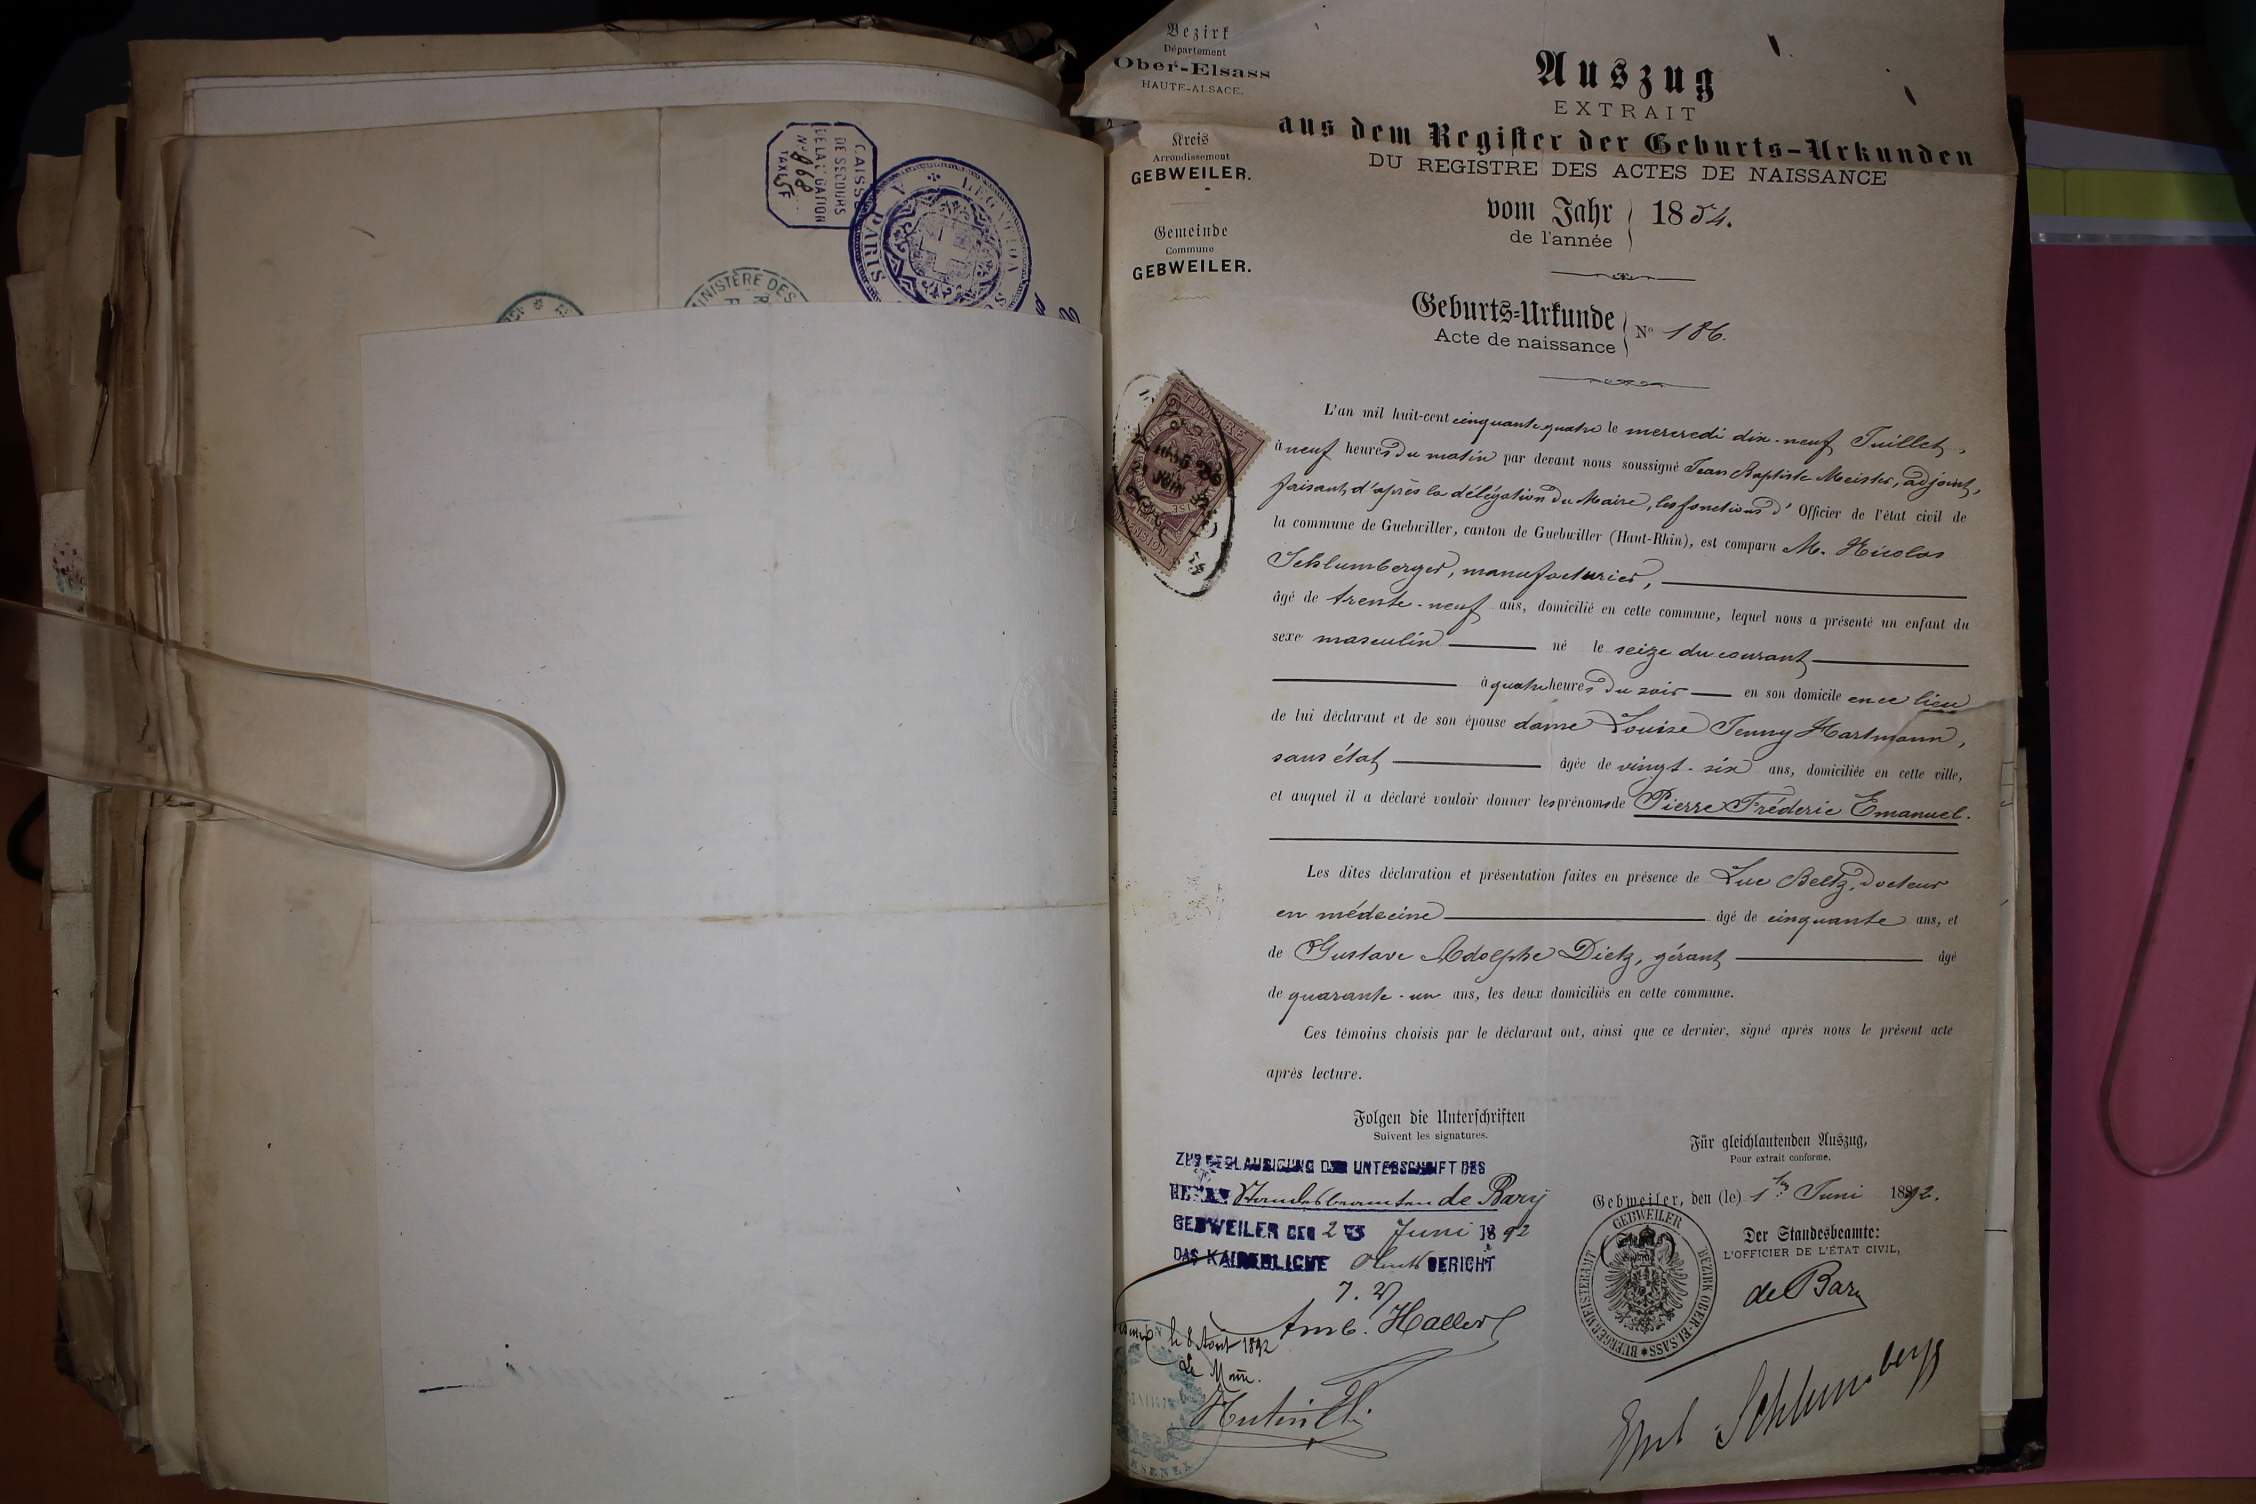 CAISSE
DE SECOURS
DE LA LÉGATION
No 868
TAXE 5F
LEGATION
PARIS
MINISTÈRE DES
Bezirk
Département
Ober-Elsass
HAUTE-ALSACE.
Kreis
Arrondissement
GEBWEILER.
Gemeinde
Commune
GEBWEILER.
Auszug
EXTRAIT
aus dem Register der Geburts-Urkunden
DU REGISTRE DES ACTES DE NAISSANCE
vom Jahr
de l'année
1854.
Geburts-Urkunde
Acte de naissance
No 186.
TIMBRE
L'an mil huit-cent cinquante quatre le mercredi dix-neuf Juillet,
à neuf heures du matin par devant nous soussigné Jean Baptiste Meister, adjoint,
faisant d'après la délégation du Maire, les fonctions d' Officier de l'état civil de
la commune de Guebwiller, canton de Guebwiller (Haut-Rhin), est comparu M. Nicolas
Schlumberger, manufacturier,
âgé de trente-neuf ans, domicilié en cette commune, lequel nous a présenté un enfant du
sexe masculin né le seize du courant
à quatre heures du soir en son domicile en ce lieu
de lui déclarant et de son épouse dame Louise Jenny Hartmann,
sans état âgée de vingt-six ans, domiciliée en cette ville,
et auquel il a déclaré vouloir donner les prénoms de Pierre Fréderic Emanuel.
Les dites déclaration et présentation faites en présence de Luc Beltz, docteur
en médecine âgé de cinquante ans, et
de Gustave Adolphe Dietz, gérant âgé
de quarante-un ans, les deux domiciliés en cette commune.
Ces témoins choisis par le déclarant ont, ainsi que ce dernier, signé après nous le présent acte
après lecture.
Folgen die Unterschriften
Suivent les signatures.
Für gleichlautenden Auszug,
Pour extrait conforme,
Gebweiler, den (le) 1ten Juni 1892.
Der Standesbeamte:
L'OFFICIER DE L'ÉTAT CIVIL,
de Bary
GEBWEILER
BUERGERMEISTERAMT
BEZIRK OBER-ELSASS
ZUR BEGLAUBIGUNG DER UNTERSCHRIFT DES
HERRN Standesbeamten de Bary
GEBWEILER DEN 2 Juni 1892
DAS KAISERLICHE Amts GERICHT
Amb. Haller
le 8 Août 1892
Le Maire.
Eml Schlumberger